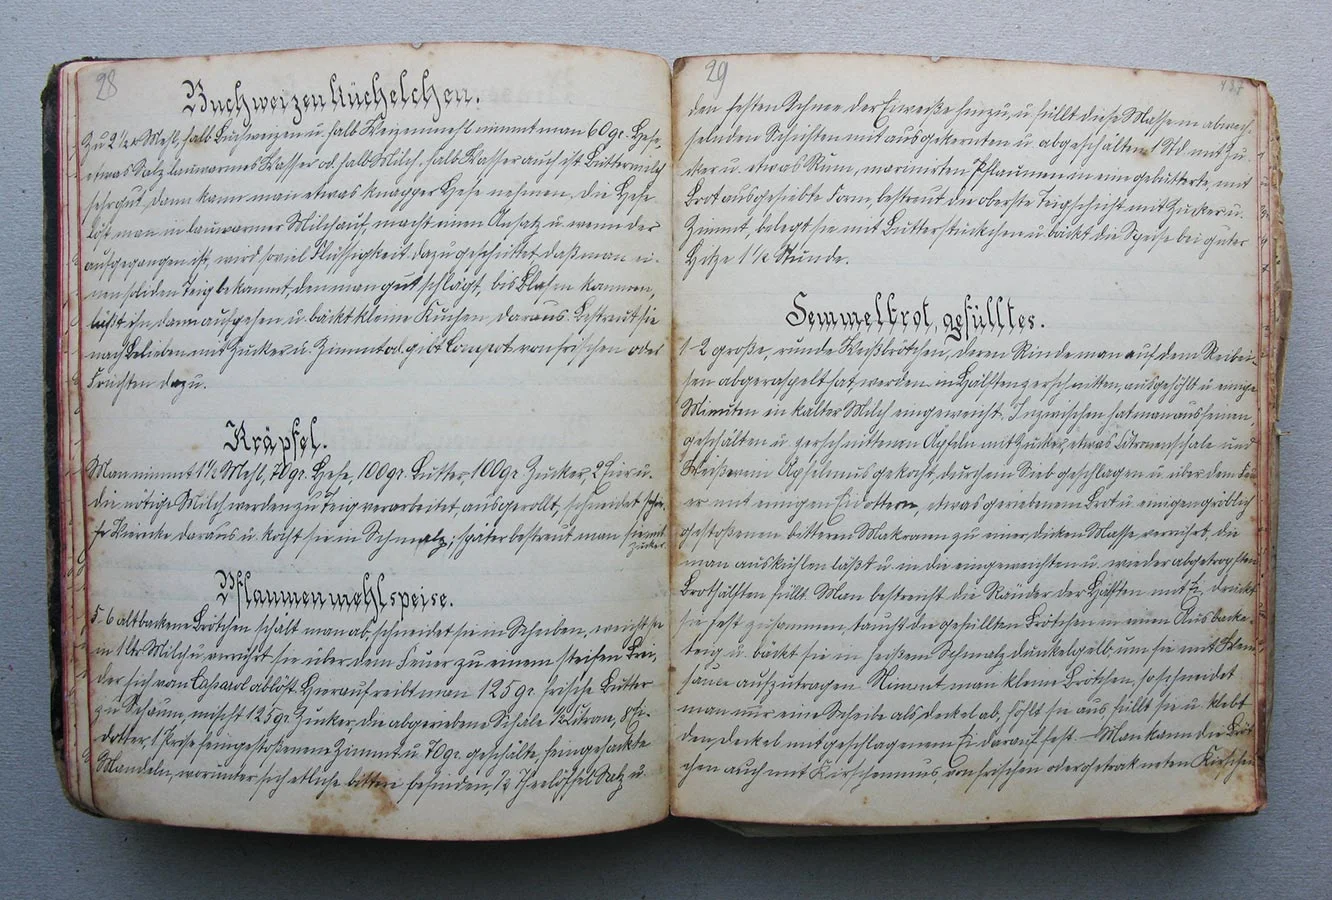 28
Buchweizenküchelchen.
Zu 2 ½ Mehl, halb Buchweizen u. halb Weizenmehl nimmt man 60 gr. Hefe,
etwas Salz lauwarmes Wasser od. halb Milch, halb Wasser auch ist Buttermilch
sehr gut, dann kann man etwas knapper Hefe nehmen. Die Hefe
löst man in lauwarmer Milch auf, macht einen Ansatz u. wenn der
aufgegangen ist, wird soviel Flüssigkeit dazu geschüttet daß man ei-
nen soliden Teig bekommt, den man gut schlägt, bis Blasen kommen,
läßt ihn dann aufgehen u. bäckt kleine Kuchen daraus. Bestreut sie
nach Belieben mit Zucker u. Zimmt od. gibt Compot von frischen oder
Früchten dazu.
Kräpfel.
Man nimmt 1 ½ Mehl, 70 gr. Hefe, 100 gr. Butter 100 gr. Zucker, 2 Eier u.
die nötige Milch werden zu Teig verarbeitet, ausgerollt, schneidet
daraus u. kocht sie in Schmalz, später bestreut man sie mit
Zucker.
Pflaumenmehlspeise.
5-6 altbackene Brötchen schält man ab, schneidet sie in Scheiben, weicht sie
in 1 ltr Milch u. verrührt sie über dem Feuer zu einem steifen Brei,
der sich vom Casserol ablöst. Hierauf reibt man 125 gr. frische Butter
zu Schaum, mischt 125 gr. Zucker, die abgeriebene Schale ½ Citrone, 8 Ei-
dotter 1 Prise feingestoßenen Zimmt u. 70 gr. geschälte, feingehackte
Mandeln, worunter sich etliche bittere befinden, ½ Theelöffel Salz u.
29
den festen Schnee der Eiweiße hinzu, u. füllt diese Masse in abwech-
selnden Schichten mit ausgekernten u. abgeschälten 1 Std. mit Zu-
cker u. etwas Rum, marinirten Pflaumen in eine gebutterte mit
Brot ausgesiebte Form, bestreut die oberste Teigschicht mit Zucker u.
Zimmt, belegt sie mit Butterstückchen u. bäckt die Speise bei guter
Hitze 1 ½ Stunde.
Semmelbrot, gefülltes.
1-2 große, runde Weißbrötchen, deren Rinde man auf dem Reibei-
sen abgeraspelt hat werden in Hälften zerschnitten, ausgehöhlt u. einige
Minuten in kalter Milch eingeweicht. Inzwischen hat man aus feinen,
geschälten u. zerschnittenen Äpfeln mit Zucker, etwas Citronenschale und
Weißwein Apfelmus gekocht, durch ein Sieb geschlagen u. über dem Feu-
er mit einigen Eidottern, etwas geriebenem Brot u. einigen gröblich
gestoßenen bitteren Makronen zu einer dicken Masse verrührt, die
man auskühlen läßt u. in die eingeweichten u. wieder abgetropften
Brothälften füllt. Man bestreicht die Ränder der Hälften mit Ei, drückt
sie fest zusammen, taucht die gefüllten Brötchen in einen Ausback-
teig u. bäckt sie in heißem Schmalz dunkelgelb um sie mit
sauce aufzutragen. Nimmt man kleine Brötchen, so schneidet
man nur eine Scheibe als Deckel ab, höhlt sie aus, füllt sie u. klebt
den Deckel mit geschlagenem Ei darauf fest. – Man kann die Bröt-
chen auch mit Kirschenmus, von frischen oder getrockneten Kirschen